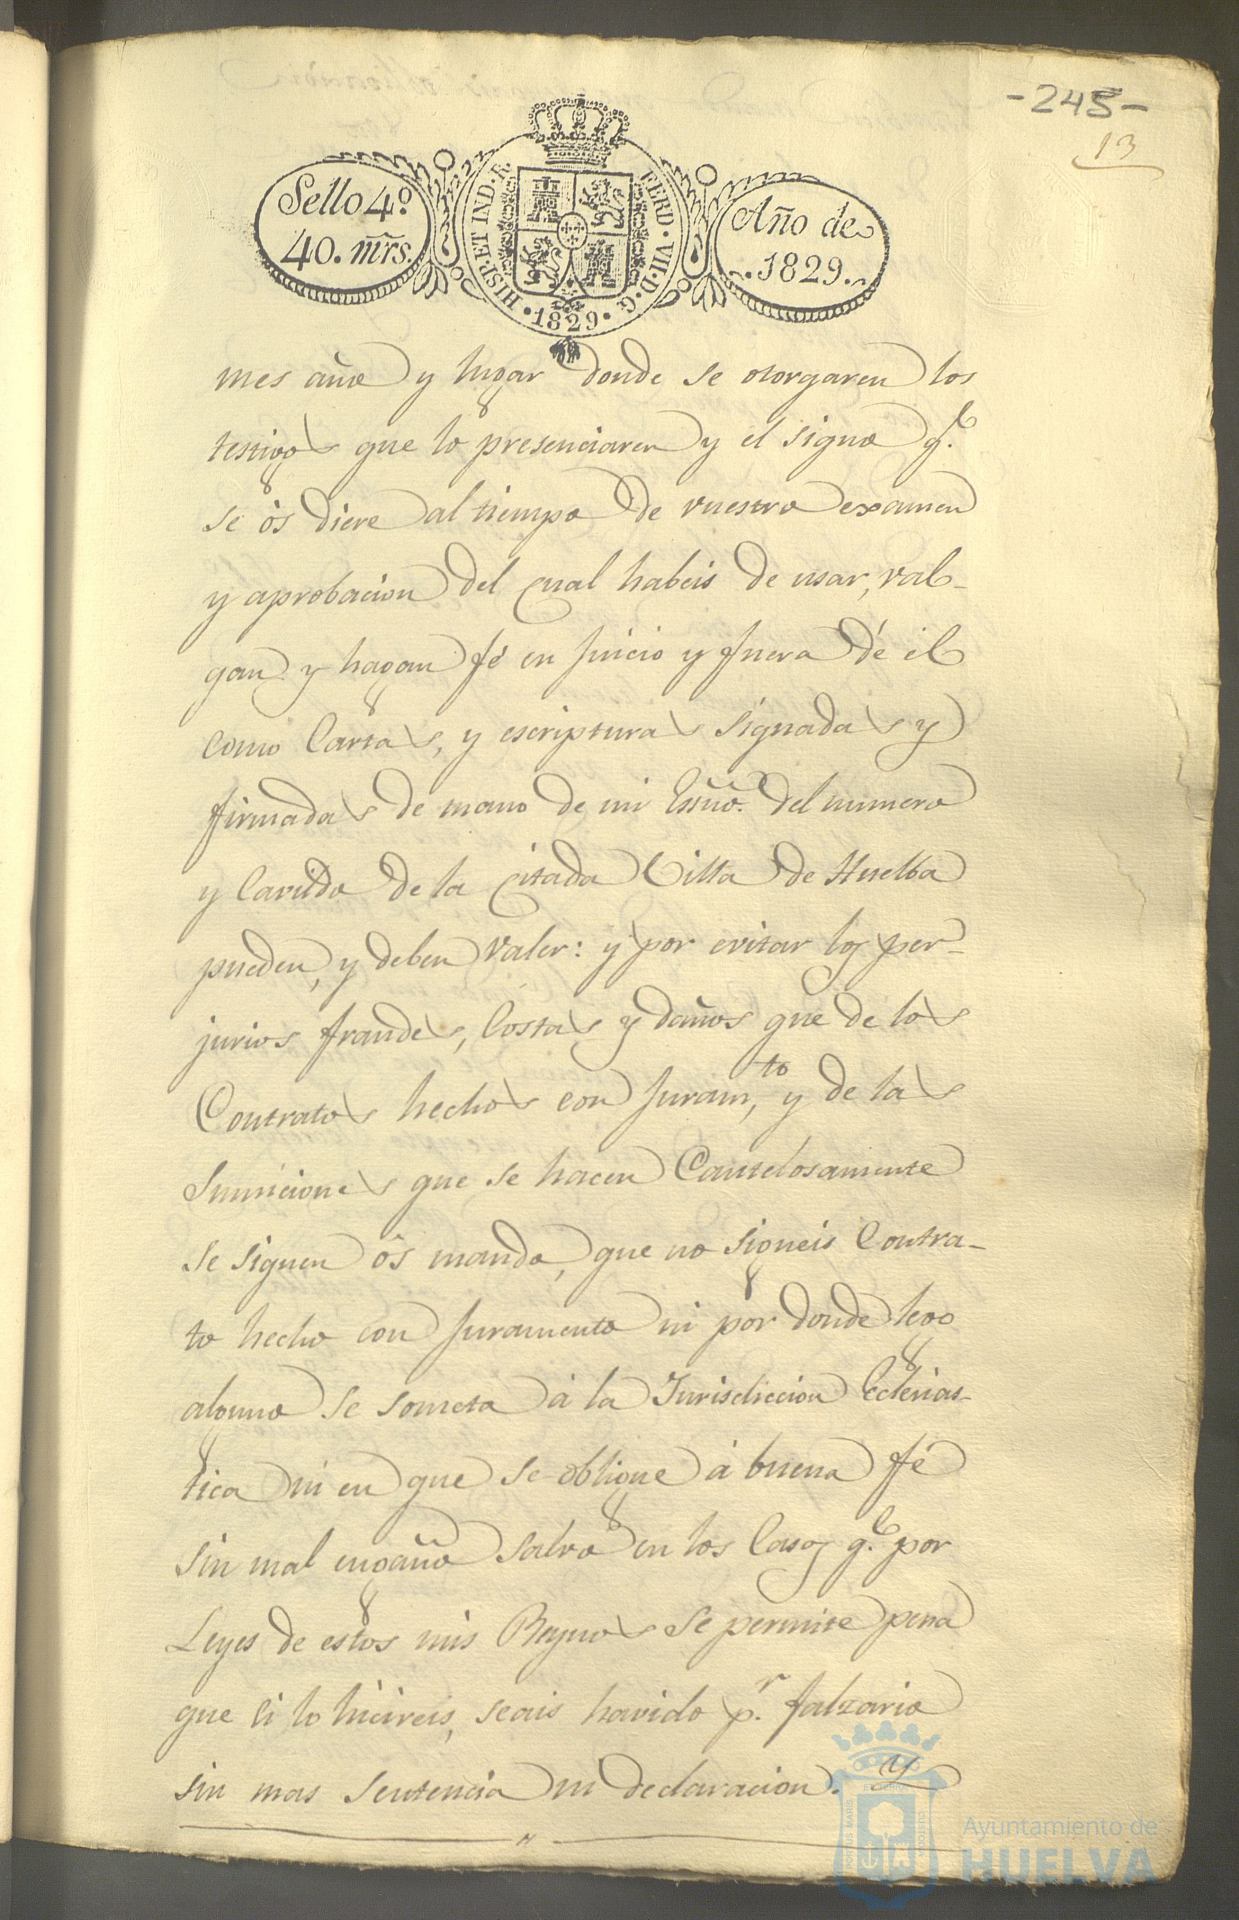 -245-
13
Sello 4º
40. mrs.
HISP. ET IND. R.
FERD. VII. D. G.
1829
Año de
1829.
mes año y lugar donde se otorgaren los
testigos que lo presenciaren y el signo q.e
se ós diere al tiempo de vuestro examen
y aprobacion del cual habeis de usar, val-
gan y hagan fé en juicio y fuera dé él
como Cartas, y escripturas signadas y
firmadas de mano de mi Essño. del numero
y Cavildo de la Citada Villa de Huelba
pueden, y deben valer: y por evitar los per-
jurios fraudes, Costas y daños que de los
Contratos hechos con Juram.to, y de las
Sumiciones que se hacen Cautelosamente
se siguen ós mando, que no signeis Contra-
to hecho con Juramento ni por donde lego
alguno se someta á la Jurisdiccion Eclesias-
tica ni en que se obligue á buena fé
sin mal engaño salvo en los Casos q.e por
Leyes de estos mis Reynos se permite pena
que si lo hicireis, seais havido p.r falzario
sin mas sentencia ni declaracion. Y
Ayuntamiento de
HUELVA